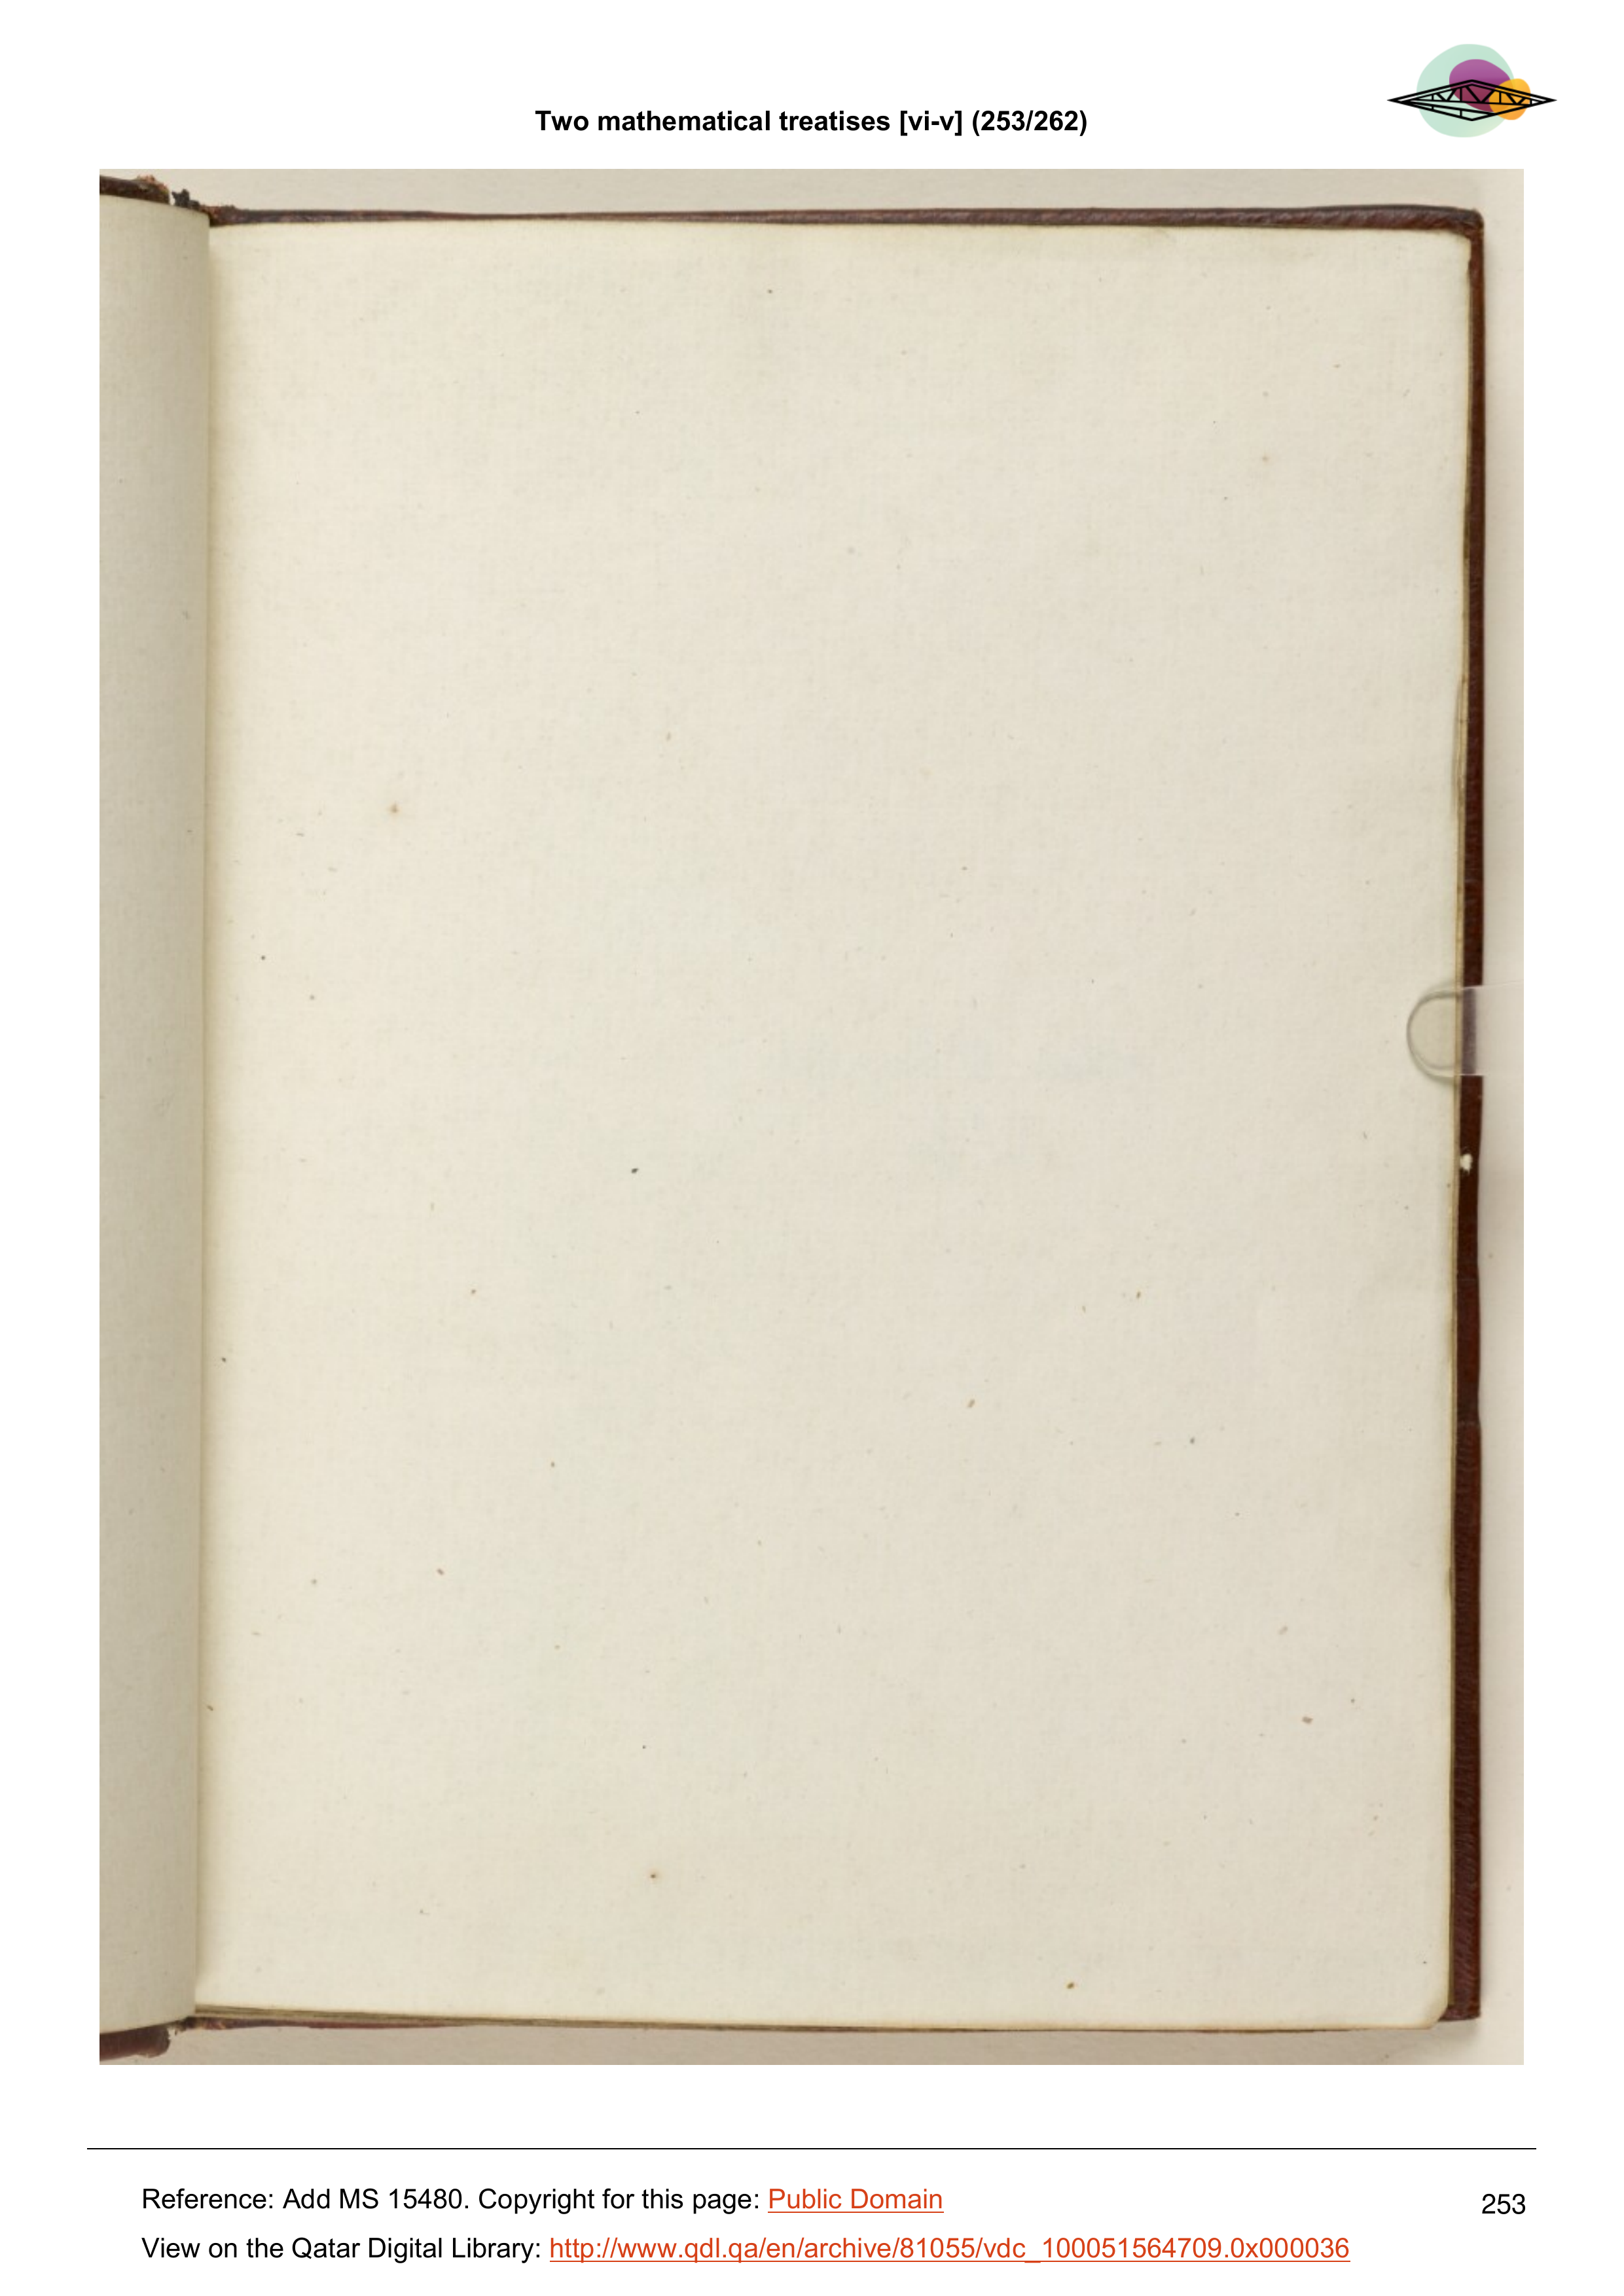 Two mathematical treatises [vi-v] (253/262)
Reference: Add MS 15480. Copyright for this page: Public Domain
253
View on the Qatar Digital Library: http://www.qdl.qa/en/archive/81055/vdc_100051564709.0x000036